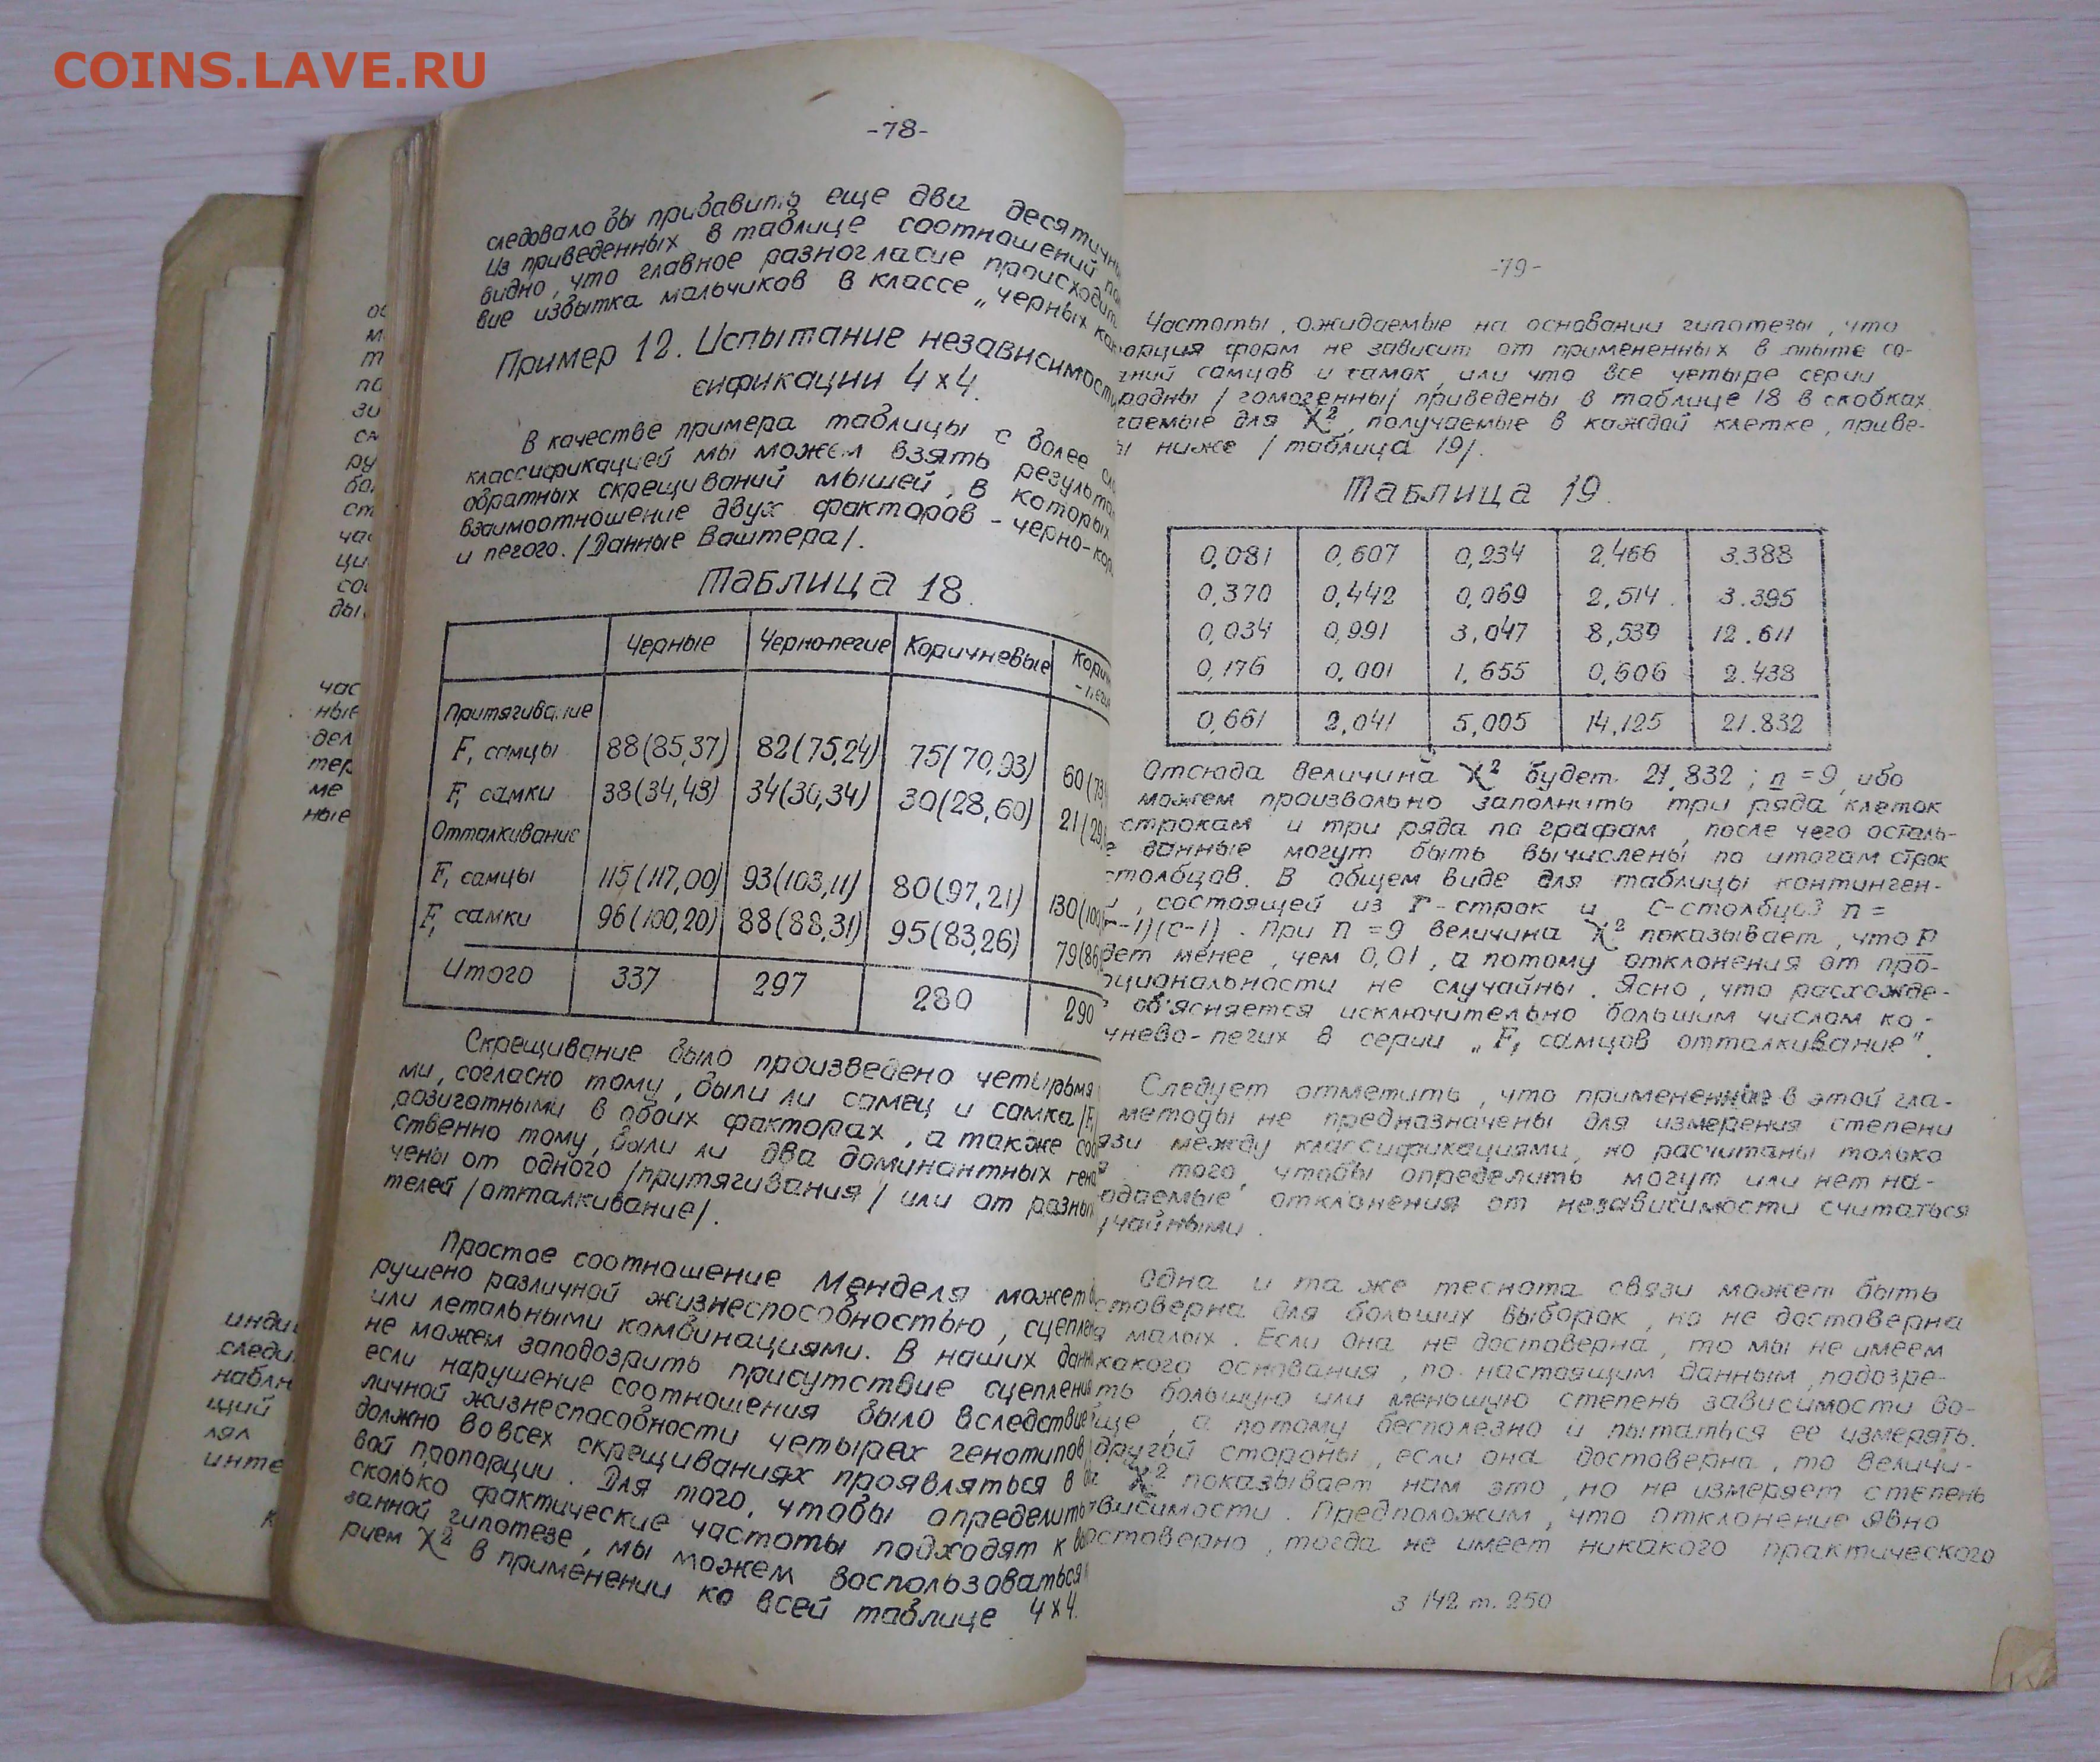 COINS.LAVE.RU
-78-
следовало бы прибавить еще два
Из приведенных в таблице соотношений
видно, что главное разногласие
вие избытка мальчиков в классе „черных
Пример 12. Испытание
сификации 4×4.
В качестве примера таблицы с более
классификацией мы можем взять
обратных скрещиваний мышей, в которых
взаимоотношение двух факторов - черно-
и пегого. /Данные Ваштера/.
Таблица 18.
Черные Чернопегие Коричневые
Притягивание
F₁ самцы 88(85,37) 82(75,24) 75(70,93) 60
F₁ самки 38(34,43) 34(30,34) 30(28,60) 21
Отталкивание
F₁ самцы 115(117,00) 93(103,11) 80(97,21) 130
F₁ самки 96(100,20) 88(88,31) 95(83,26) 79
Итого 337 297 280 290
Скрещивание было произведено четырьмя
ми, согласно тому, были ли самец и самка
розиготными в обоих факторах, а также
ственно тому, были ли два доминантных
чены от одного /притягивания/ или от
телей /отталкивание/.
Простое соотношение Менделя может
рушено различной жизнеспособностью,
или летальными комбинациями. В наших
не можем заподозрить присутствие
если нарушение соотношения было вследствие
личной жизнеспособности четырех генотипов
должно во всех скрещиваниях проявляться в
вой пропорции. Для того, чтобы
сколько фактические частоты подходят к
занной гипотезе, мы можем воспользоваться
рием χ² в применении ко всей таблице 4×4.
-79-
Частоты, ожидаемые на основании гипотезы, что
порция форм не зависит от примененных в опыте со-
самцов и самок, или что все четыре серии
/гомогенны/ приведены в таблице 18 в скобках
для χ², получаемые в каждой клетке, приве-
ниже /таблица 19/.
Таблица 19.
0,081 0,607 0,234 2,466 3.388
0,370 0,442 0,069 2,514 3.395
0,034 0,991 3,047 8,539 12.611
0,176 0,001 1,655 0,606 2.438
0,661 2,041 5,005 14,125 21.832
Отсюда величина χ² будет 21,832; n=9, ибо
можем произвольно заполнить три ряда клеток
строкам и три ряда по графам, после чего осталь-
данные могут быть вычислены по итогам строк
столбцов. В общем виде для таблицы континген-
, состоящей из r-строк и c-столбцов n=
(r-1)(c-1). При n=9 величина χ² показывает, что P
менее, чем 0,01, а потому отклонения от про-
не случайны. Ясно, что расхожде-
об'ясняется исключительно большим числом ко-
чнево-пегих в серии „F₁ самцов отталкивание".
Следует отметить, что примененные в этой гла-
методы не предназначены для измерения степени
между классификациями, но расчитаны только
того, чтобы определить могут или нет на-
отклонения от независимости считаться
чайными.
Одна и та же теснота связи может быть
стоверна для больших выборок, но не достоверна
малых. Если она не достоверна, то мы не имеем
какого основания, по настоящим данным, подозре-
большую или меньшую степень зависимости во-
, а потому бесполезно и пытаться ее измерять.
другой стороны, если она достоверна, то величи-
χ² показывает нам это, но не измеряет степень
висимости. Предположим, что отклонение явно
остоверно, тогда не имеет никакого практического
3 142 т. 250